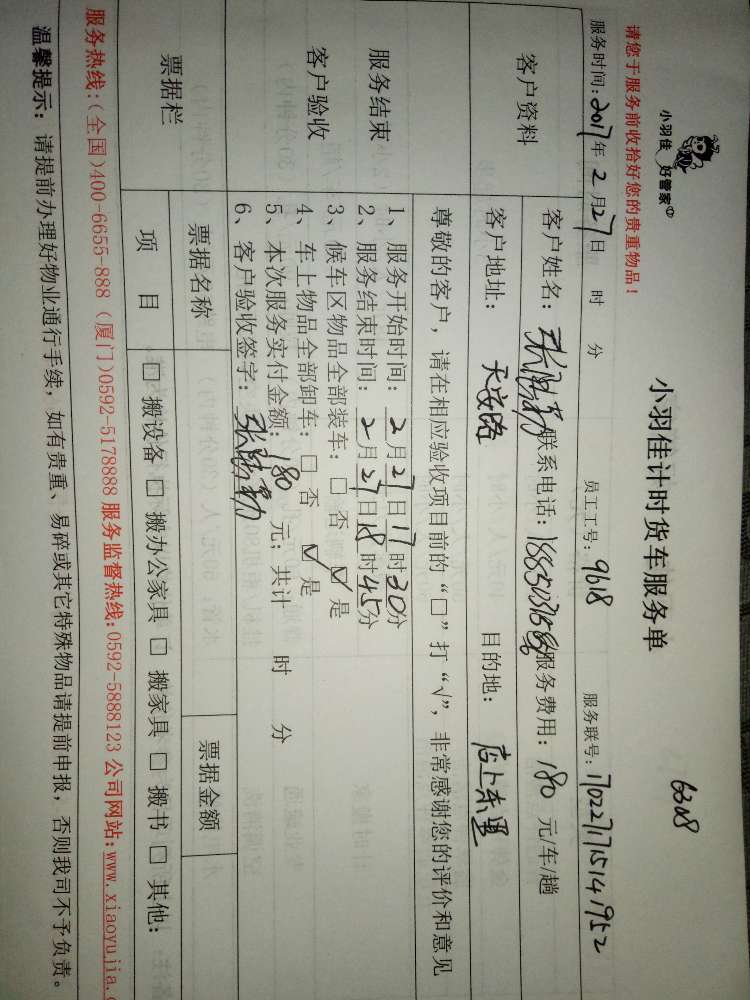 小羽佳 好管家
小羽佳计时货车服务单
6318
请您于服务前收拾好您的贵重物品！
服务时间：2017年2月27日 时 分 员工工号：9618 服务联号：1702271715141952
客户资料
客户姓名： 联系电话： 服务费用：180元/车/趟
客户地址：天安路 目的地：店上东里
尊敬的客户，请在相应验收项目前的“□”打“√”，非常感谢您的评价和意见
服务结束
客户验收
1、服务开始时间：2月27日17时20分
2、服务结束时间：2月27日18时45分
3、候车区物品全部装车：□ 否 ☑ 是
4、车上物品全部卸车：□ 否 ☑ 是
5、本次服务实付金额：180元；共计 时 分
6、客户验收签字：
票据栏
票据名称 票据金额
项 目 □ 搬设备 □ 搬办公家具 □ 搬家具 □ 搬书 □ 其他：
服务热线：（全国）400-6655-888（厦门）0592-5178888 服务监督热线：0592-5888123 公司网站：www.xiaoyujia.c
温馨提示：请提前办理好物业通行手续，如有贵重、易碎或其它特殊物品请提前申报，否则我司不予负责。